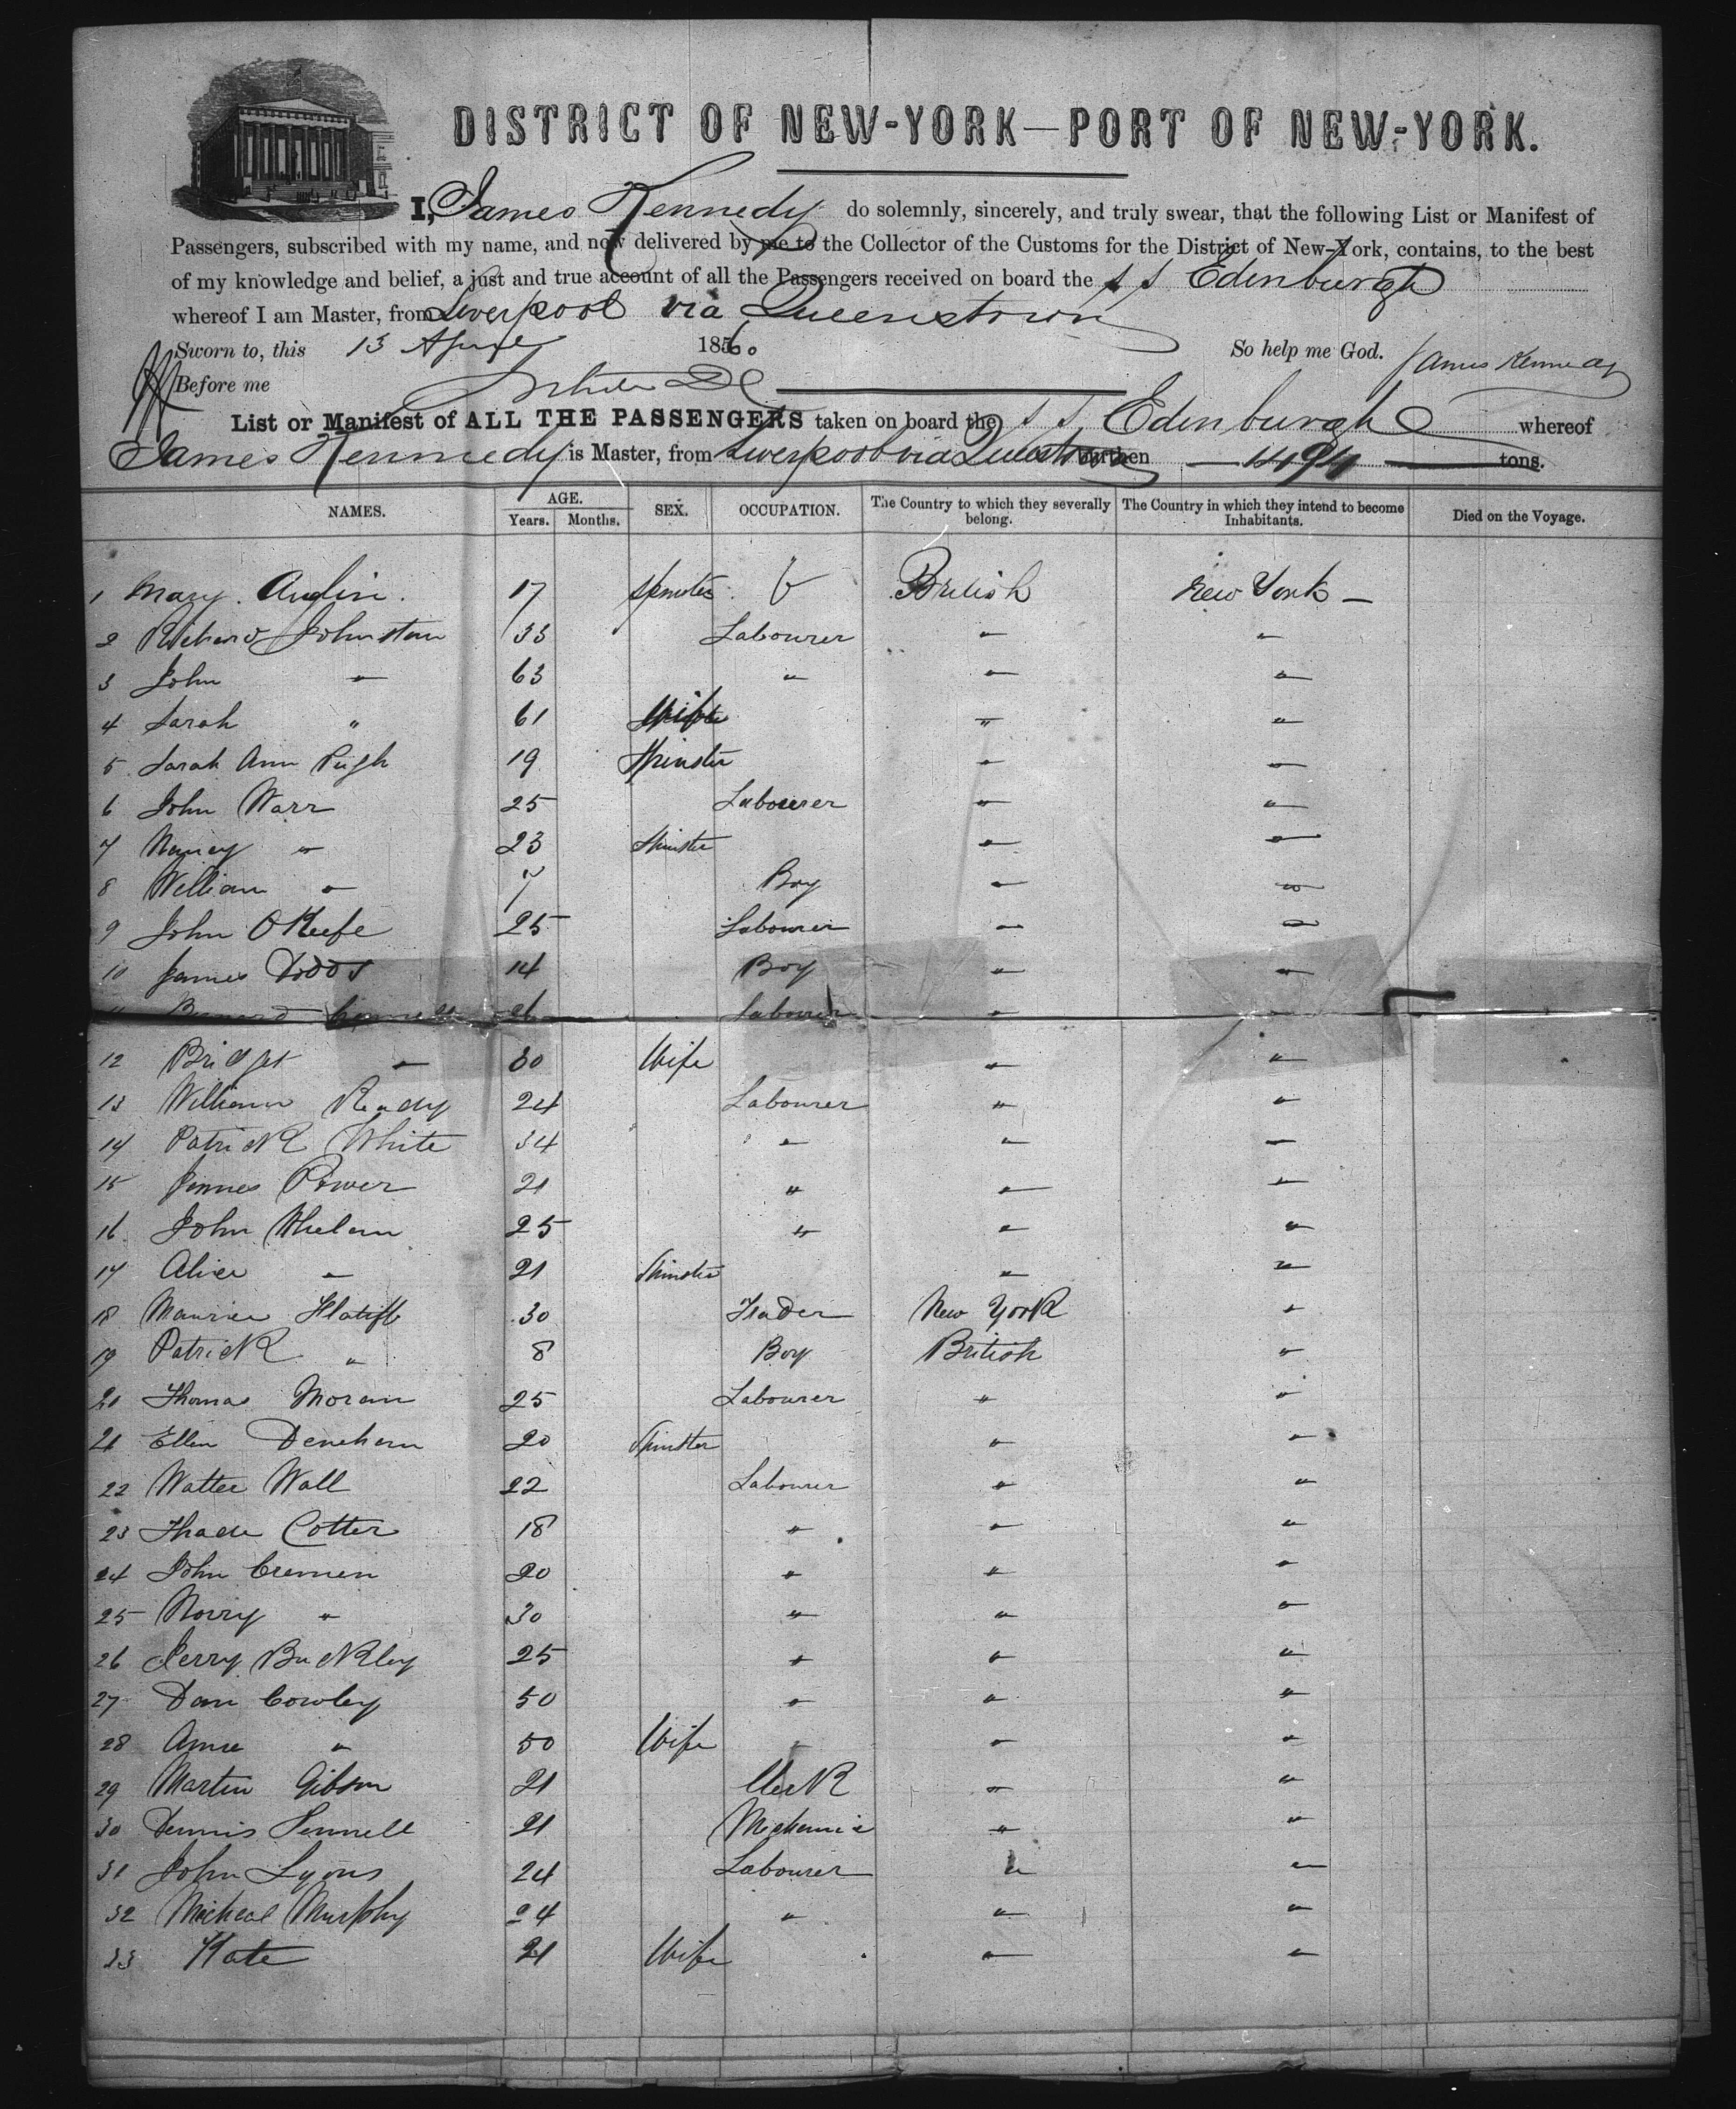 DISTRICT OF NEW-YORK—PORT OF NEW-YORK.
I, James Kennedy do solemnly, sincerely, and truly swear, that the following List or Manifest of
Passengers, subscribed with my name, and now delivered by me to the Collector of the Customs for the District of New-York, contains, to the best
of my knowledge and belief, a just and true account of all the Passengers received on board the S S Edenburgh
whereof I am Master, from Liverpool via Queenstown
Sworn to, this 13 April 1860 So help me God. James Kennedy
Before me
List or Manifest of ALL THE PASSENGERS taken on board the S S Edenburgh whereof
James Kennedy is Master, from Liverpool via Queenstown burthen tons.
NAMES. AGE. SEX. OCCUPATION. The Country to which they severally belong. The Country in which they intend to become Inhabitants. Died on the Voyage.
Years. Months.
1 Mary 17 Spinster British New York —
2 Richard Johnston 33 Labourer " "
3 John " 63 " " "
4 Sarah " 61 Wife " "
5 Sarah Ann Pugh 19 Spinster " "
6 John Warr 25 Labourer " "
7 Nancy " 23 Spinster " "
8 William " 7 Boy " "
9 John O Keefe 25 Labourer " "
10 James Dodds 14 Boy " "
11 Bernard 26 Labourer " "
12 Bridget " 30 Wife " "
13 William Ready 24 Labourer " "
14 Patrick White 34 " " "
15 James Power 21 " " "
16 John Whelan 25 " " "
17 Alice " 21 Spinster " "
18 Maurice 30 New York "
19 Patrick " 8 Boy British "
20 Thomas Moran 25 Labourer " "
21 Ellen Denehan 20 Spinster " "
22 Walter Wall 22 Labourer " "
23 Thade Cotter 18 " " "
24 John Cremen 20 " " "
25 Norry " 30 " " "
26 Jerry Buckley 25 " " "
27 Dan Cowley 50 " " "
28 Anne " 50 Wife " " "
29 Martin Gibson 21 Clerk " "
30 Dennis Pennell 21 Mechanic " "
31 John Lyons 24 Labourer " "
32 Micheal Murphy 24 " " "
33 Kate 21 Wife " "